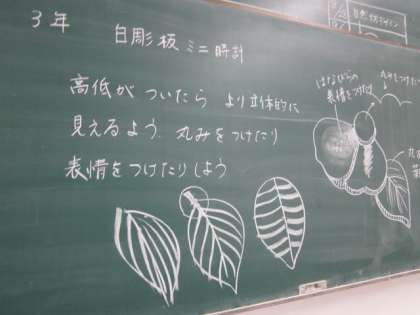 3年
白彫板ミニ時計
高低が ついたら より立体的に
見えるよう 丸みをつけたり
表情をつけたりしよう
はなびらの
表情をつけたり
丸みをつけたり